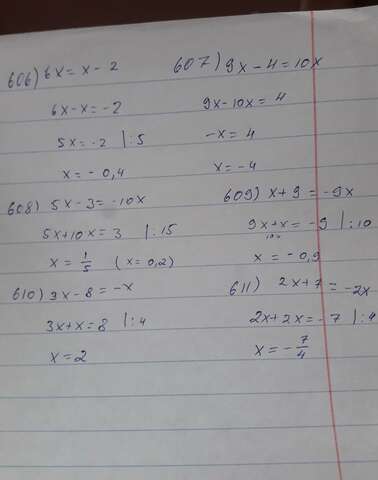 606) 6x = x - 2
6x - x = -2
5x = -2 | : 5
x = -0,4
607) 9x - 4 = 10x
9x - 10x = 4
-x = 4
x = -4
608) 5x - 3 = -10x
5x + 10x = 3 | : 15
x = 1/5 (x = 0,2)
609) x + 9 = -9x
9x + x = -9 | : 10
10x
x = -0,9
610) 3x - 8 = -x
3x + x = 8 | : 4
x = 2
611) 2x + 7 = -2x
2x + 2x = -7 | : 4
x = -7/4